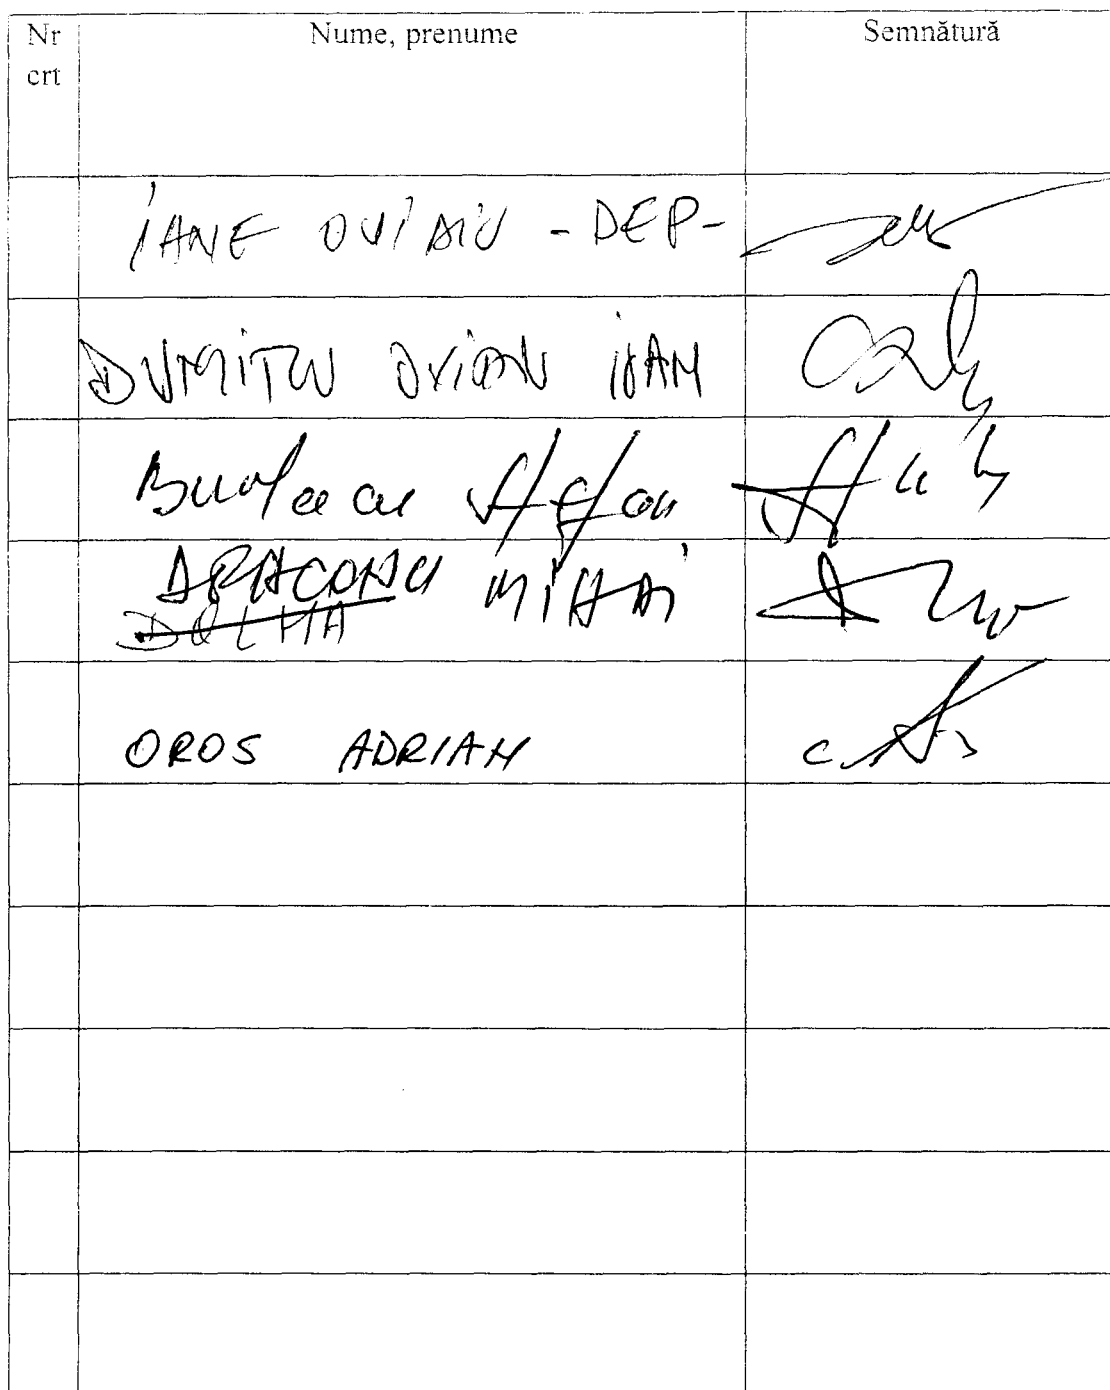 Nr crt Nume, prenume Semnătură
IANE OVIDIU - DEP-
DUMITRU OVIDIU IOAN
Burlacu Ștefan
DRACONU MIHAI
DOLHA
OROS ADRIAN